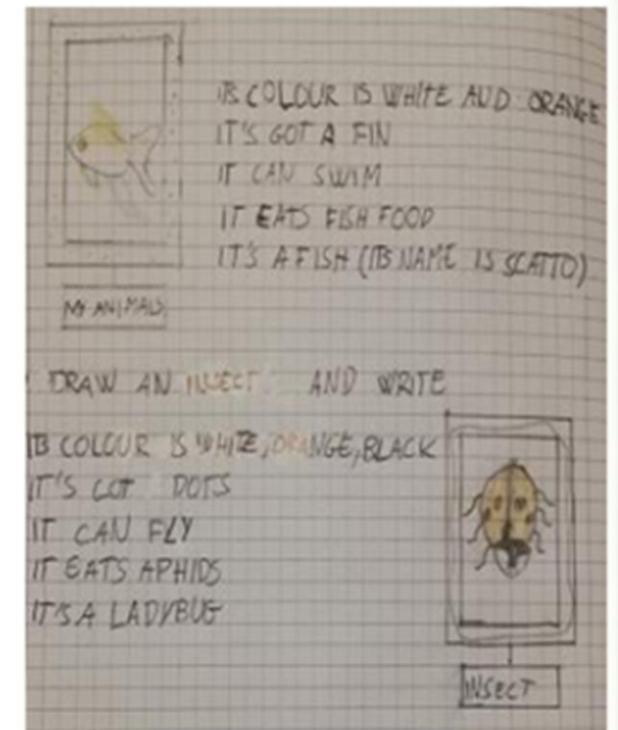 ITS COLOUR IS WHITE AND ORANGE
IT'S GOT A FIN
IT CAN SWIM
IT EATS FISH FOOD
IT'S A FISH (ITS NAME IS SCATTO)
MY ANIMALS
DRAW AN INSECT AND WRITE
ITS COLOUR IS WHITE, ORANGE, BLACK
IT'S GOT DOTS
IT CAN FLY
IT EATS APHIDS
IT'S A LADYBUG
INSECT